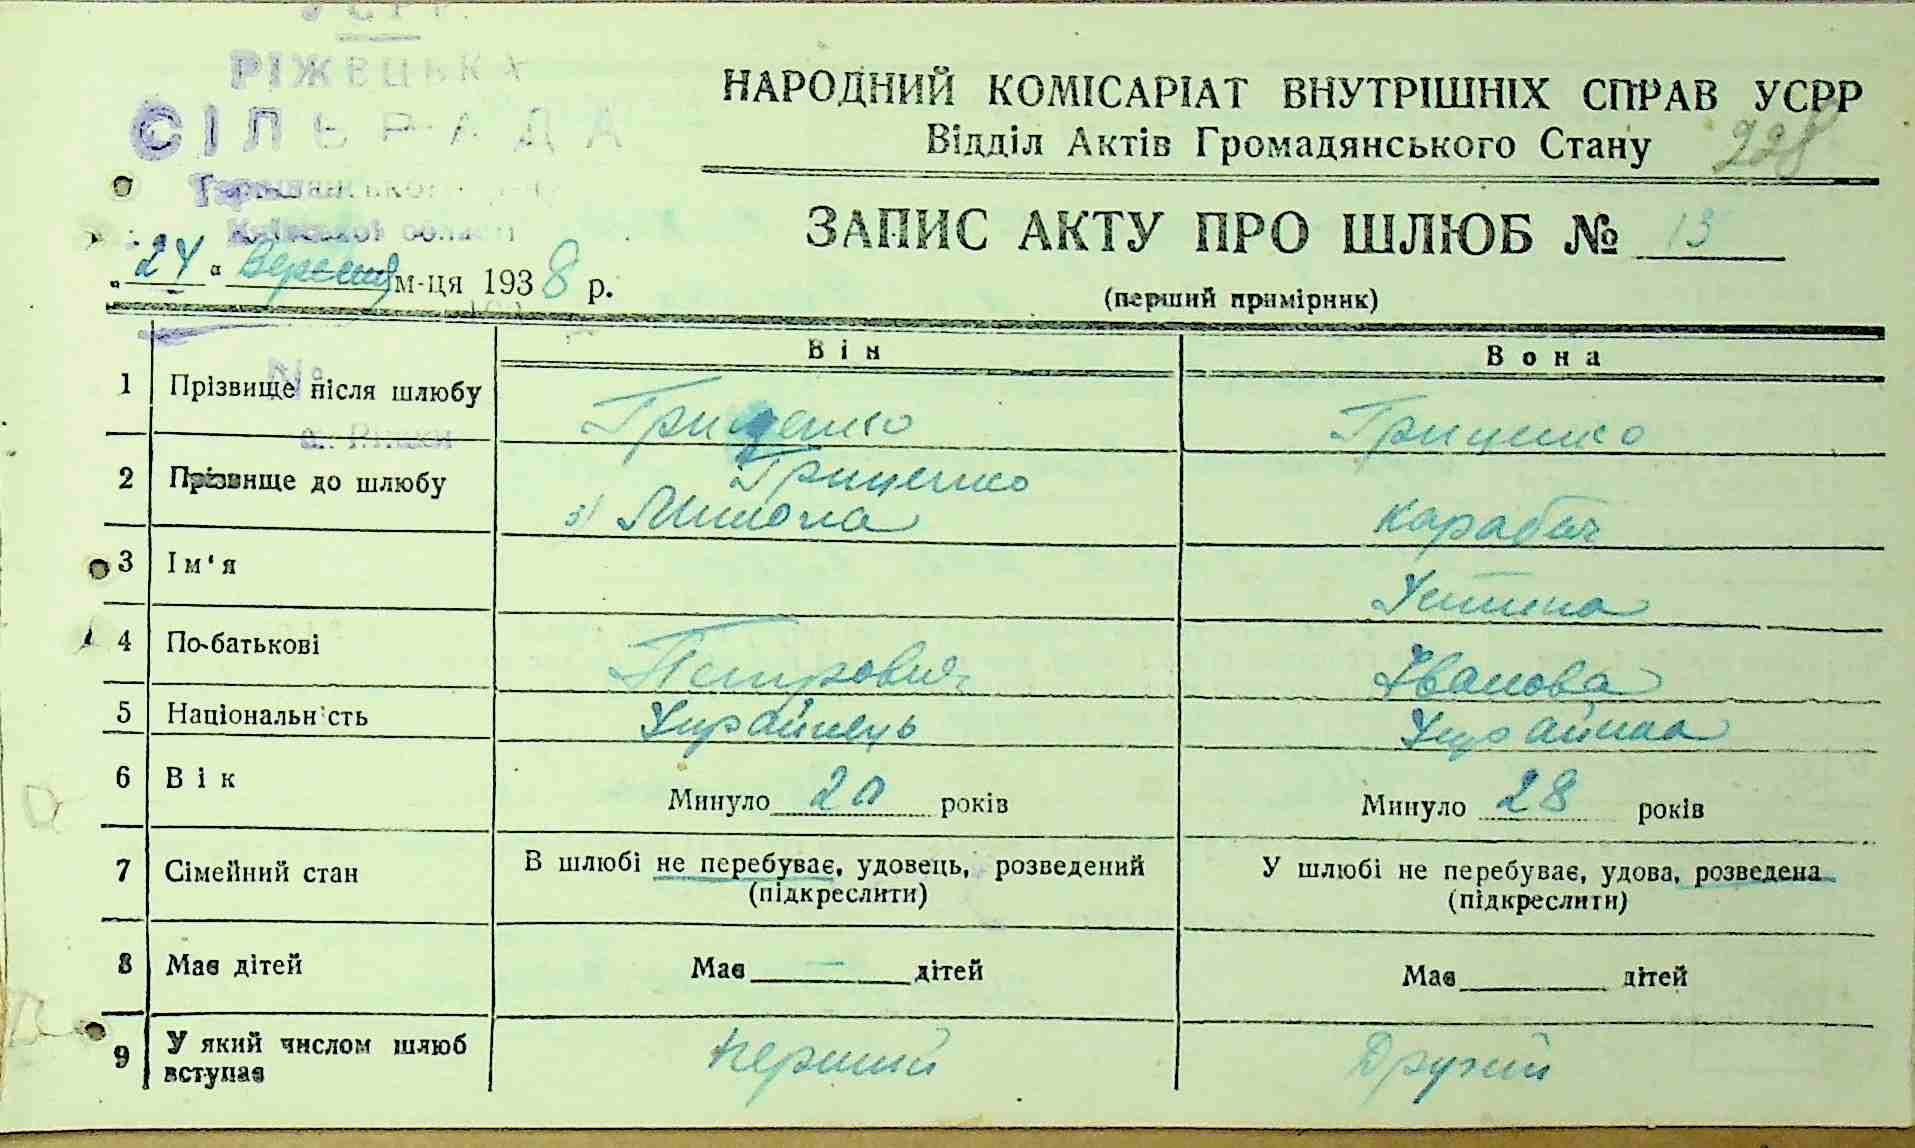 УСРР
РІЖЕЦЬКА
СІЛЬРАДА
Київської області
"24" Вересня м-ця 1938 р.
НАРОДНИЙ КОМІСАРІАТ ВНУТРІШНІХ СПРАВ УСРР
Відділ Актів Громадянського Стану 228
ЗАПИС АКТУ ПРО ШЛЮБ № 13
(перший примірник)
Він Вона
1 Прізвище після шлюбу Гриценко Гриценко
2 Прізвище до шлюбу Гриценко Карабач
3) Микола
3 Ім'я Устина
4 По-батькові Петрович Іванова
5 Національність Українець Українка
6 Вік Минуло 20 років Минуло 28 років
7 Сімейний стан В шлюбі не перебуває, удовець, розведений У шлюбі не перебуває, удова, розведена
(підкреслити) (підкреслити)
8 Має дітей Має — дітей Має дітей
9 У який числом шлюб вступає Перший Другий